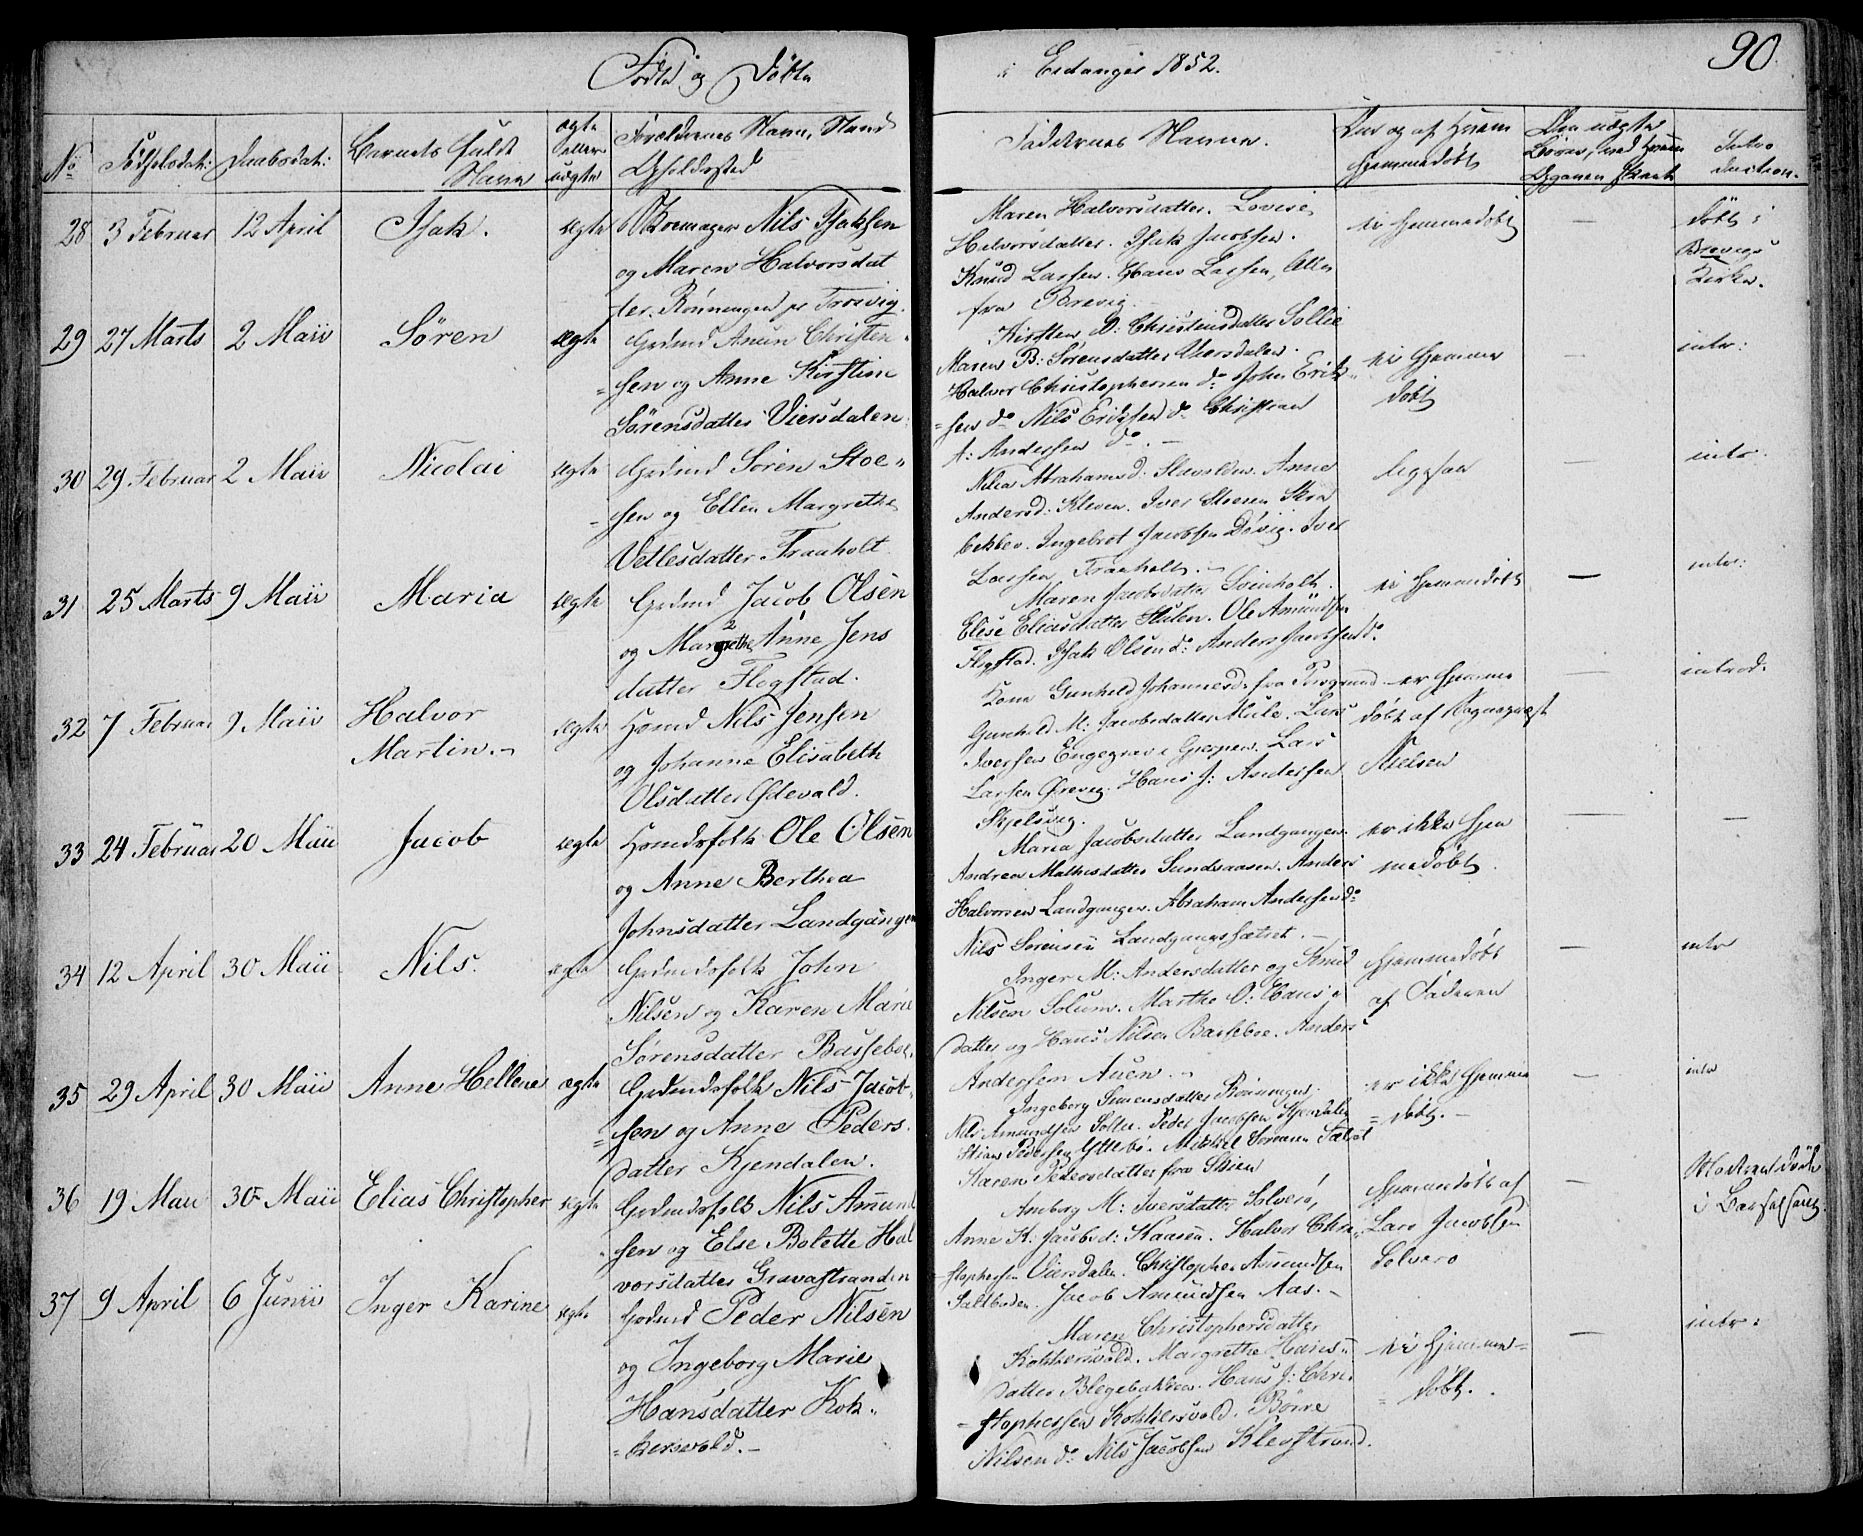 Fødte og Døbte
i Eidanger 1852.
90
No
Fødselsdat:
Daabsdat:
Barnets fulde
Navn
ægte
eller
uægte
Forældrenes Navn, Stand
Opholdssted
Faddernes Navne.
Om og af hvem
hjemmedøbt
Intro
duction.
28 3 Februar 12 April Isak. ægte Skomager Nils Isaksen
og Maren Halvorsdat
ter. Rønningen pr Trosvig.
Maren Halvorsdatter. Lovise
Halvorsdatter. Isak Jacobsen.
Knud Larsen. Hans Larsen, Alle
fra Brevig.
ei hjemmedøbt —
døbt i
Brevigs
Kirke.
29 27 Marts 2 Maii Søren ægte Grdmd Amun Christen
sen og Anne Kirstine
Sørensdatter Viersdalen
Kirsten D: Christensdatter Sollie
Maren B: Sørensdatter Viersdalen.
Halvor Christophersen do John Erik
sen do Nils Eriksen do Christian
A: Andersen do. —
ei hjemme
døbt
— intr:
30 29 Februar 2 Maii Nicolai ægte Grdmd Søren Stoe
sen og Ellen Margrethe
Vetlesdatter Traaholt.
Abrahamsd: Anne
Andersd: Kleven. Iver
Ingebret Jacobsen Døvig. Iver
Larsen Traaholt. —
ligesaa — intr.
31 25 Marts 9 Maii Maria ægte Grdmd Jacob Olsen
og Margrethe Anne Jens
datter Flogstad.
Maren Jacobsdatter
Elise Eliasdatter Stulen. Ole Amundsen
Flogstad. Isak Olsen do: Anders Jacobsen do.
ei hjemmedøbt — intr:
32 7 Februar 9 Maii Halvor
Martin. — ægte Huusmd Nils Jensen
og Johanne Elisabeth
Olsdatter Ødevald.
Kone Gunhild Johannesd: fra Porsgrund
Gunhild M: Jacobsdatter Mule. Lars
Iversen Engegrav i Gjerpen. Lars
Larsen Ørevig. Hans J: Andersen
Skjelsvig.
er hjemme
døbt af
Nielsen
— introd.
33 24 Februar 20 Maii Jacob ægte Huusmdsfolk Ole Olsen
og Anne Berthea
Johnsdatter Landgangen
Maria Jacobsdatter Landgangen.
Andrea Mathisdatter Sundsaasen. Anders
Halvorsen Landgangen. Abraham Andersen do
Nils Sørensen Landgangsfætret. —
er ikke hjem
medøbt.
— —
34 12 April 30 Maii Nils. ægte Grdmdsfolk John
Nilsen og Karen Marie
Sørensdatter Bassebo
Inger M: Andersdatter og Knud
Nilsen Solum. Marthe O: Hans
datter og Hans Nilsen Bassebo. Anders
Andersen Auen. —
hjemmedøbt
af Faderen
— intr
35 29 April 30 Maii Anne Hellene ægte Grdmdsfolk Nils Jacob
sen og Anne Peders
datter Kjendalen.
Ingeborg Simensdatter Rønningen.
Nils Amundsen Sollie. Peder Jacobsen Kjendalen
Stian Pedersen Ytterbø. Mikkel Sørensen
Karen Pedersdatter fra Skien
er ikke hjemme
døbt. —
— intr
36 19 Mai 30 Maii Elias Christopher ægte Grdmdsfolk Nils Amund
sen og Else Bolette Hal
vorsdatter Gravastranden
Amborg M: Iversdatter Solverø,
Anne K: Jacobsd: Kaasen. Halvor Chri
stophersen Viersdalen. Christopher Amundsen
Saltboden. Jacob Amundsen Aas. —
hjemmedøbt af
Lars Jacobsen
Solverø
— Moderen døde
i Barselseng
37 9 April 6 Junii Inger Karine ægte Grdmd Peder Nilsen
og Ingeborg Marie
Hansdatter Kok
kersvold. —
Maren Christophersdatter
Kokkersvold. Margrethe Hans
datter Blegebakken. Hans J: Chri
stophersen Kokkersvold. Børre
Nilsen do: Nils Jacobsen Klevstrand.
ei hjemme
døbt.
— intr: